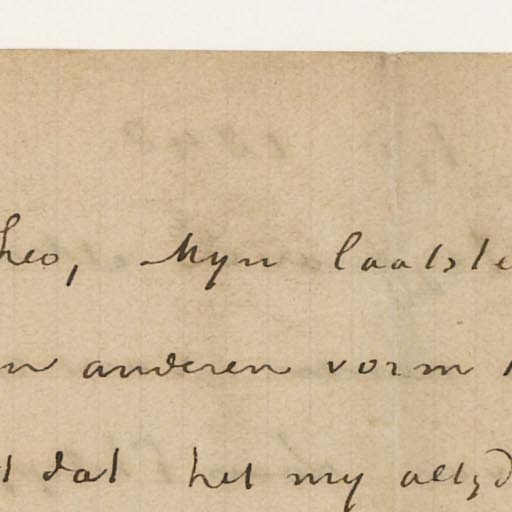 heo, Myn laatste
n anderen vorm
t dat het my altyd